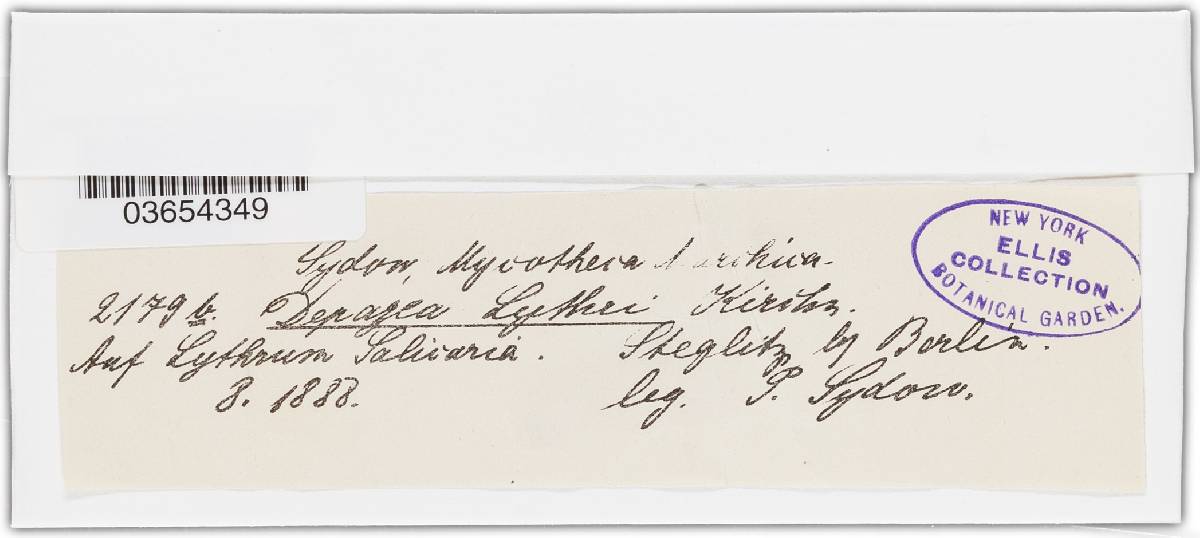 03654349
NEW YORK
ELLIS
COLLECTION
BOTANICAL GARDEN.
Sydow, Mycotheca Marchica.
2179 b. Depazea Lythri Kirchn.
Auf Lythrum Salicaria. Steglitz b/ Berlin.
8. 1888. leg. P. Sydow.